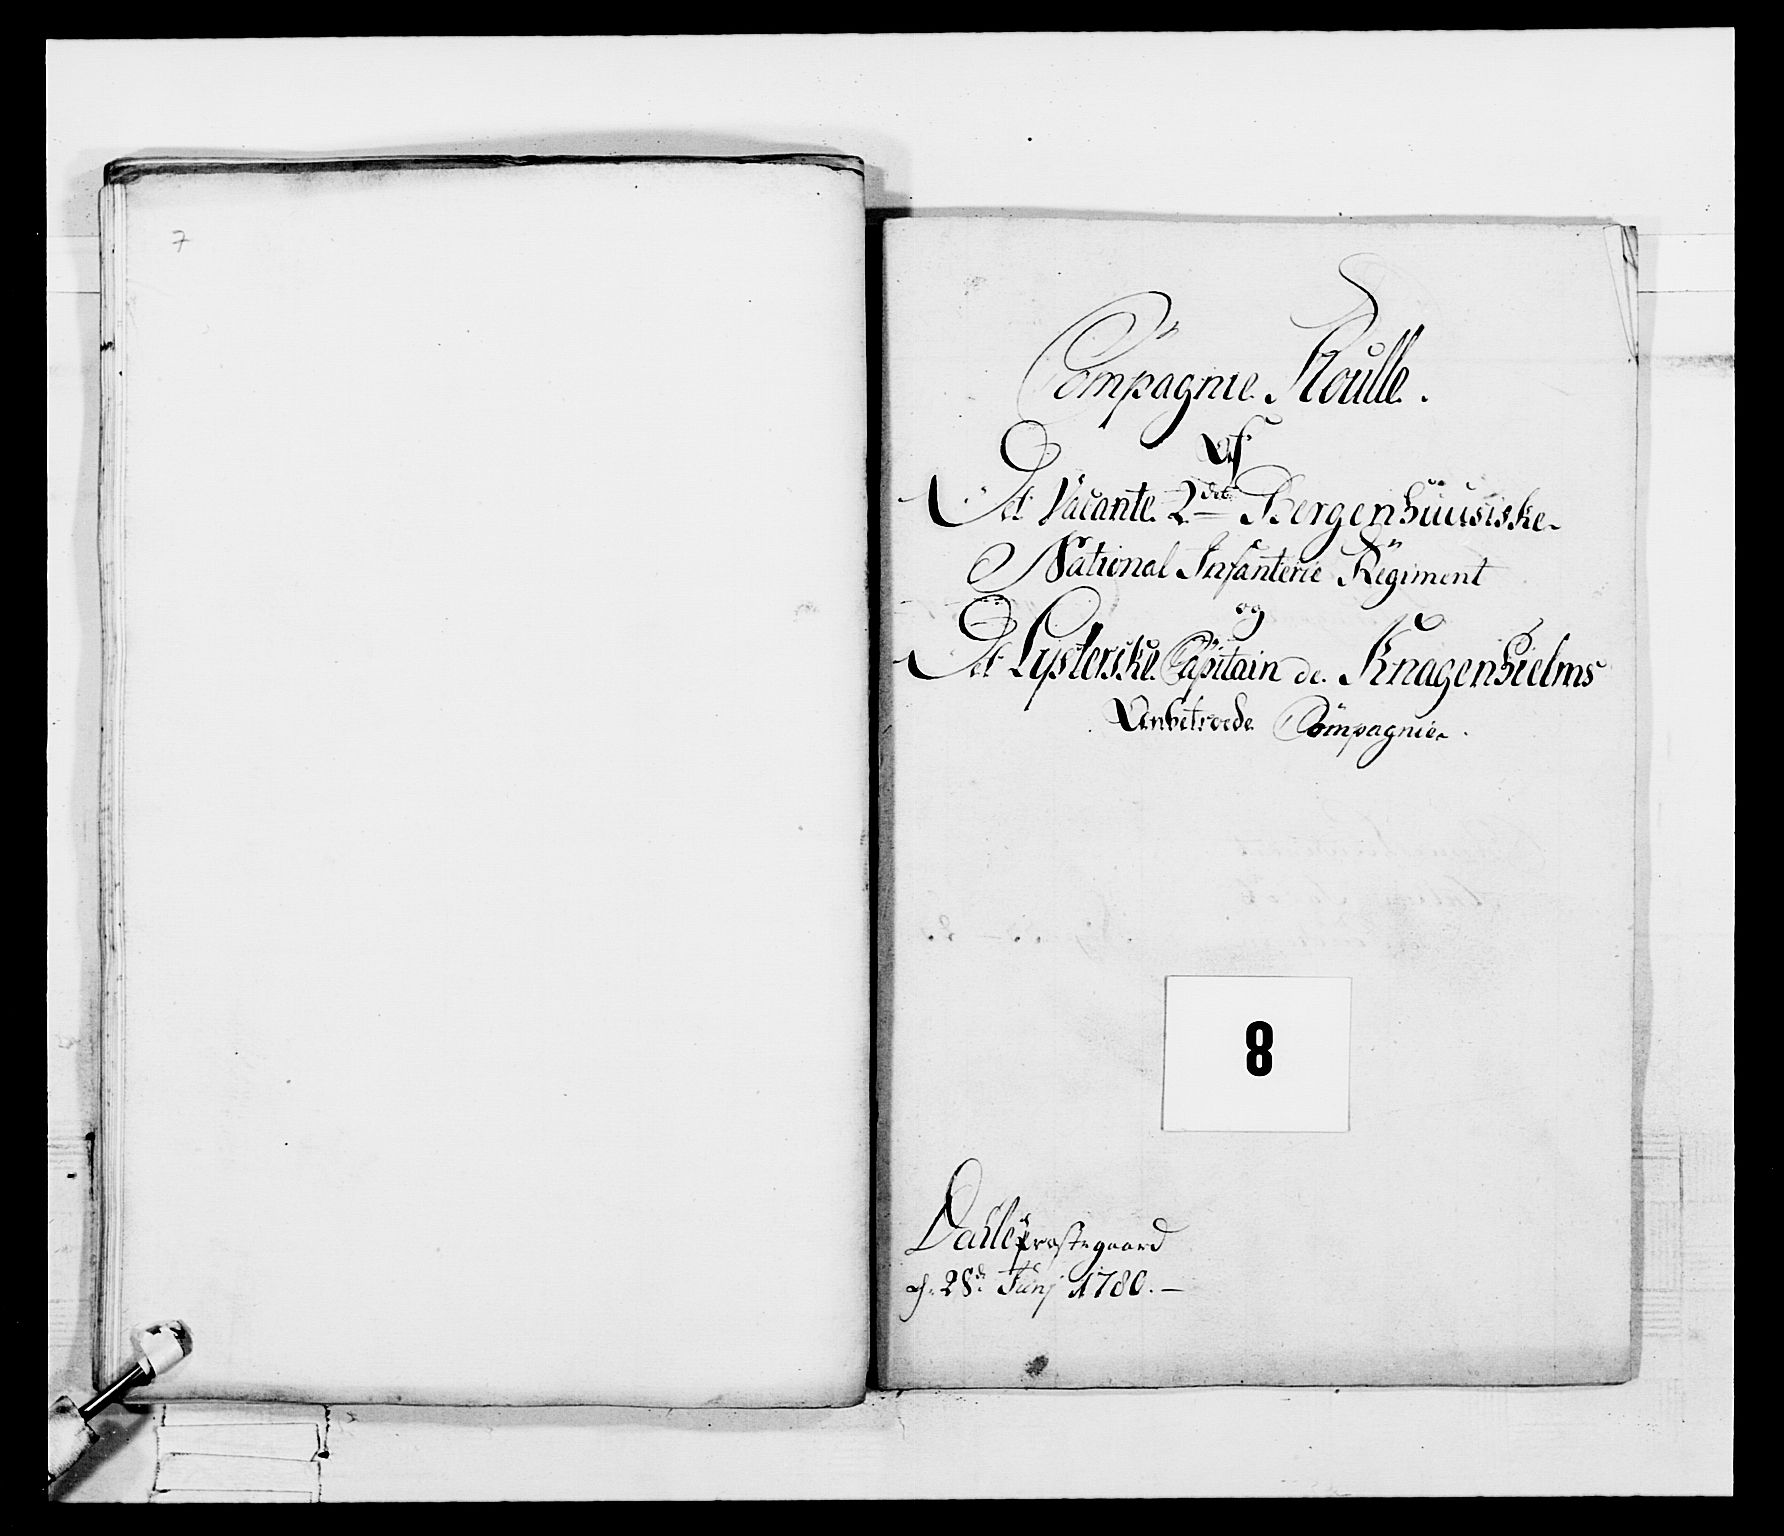 7
Compagnie Roulle.
Af
Det Vacante 2det Bergenhuusiske
National Infanterie Regiment
og
Det Lysterske Capitain de Knagenhielms
Anbetroede Compagnie.
8
Dahle Præstegaard
d. 28de Junj 1780.